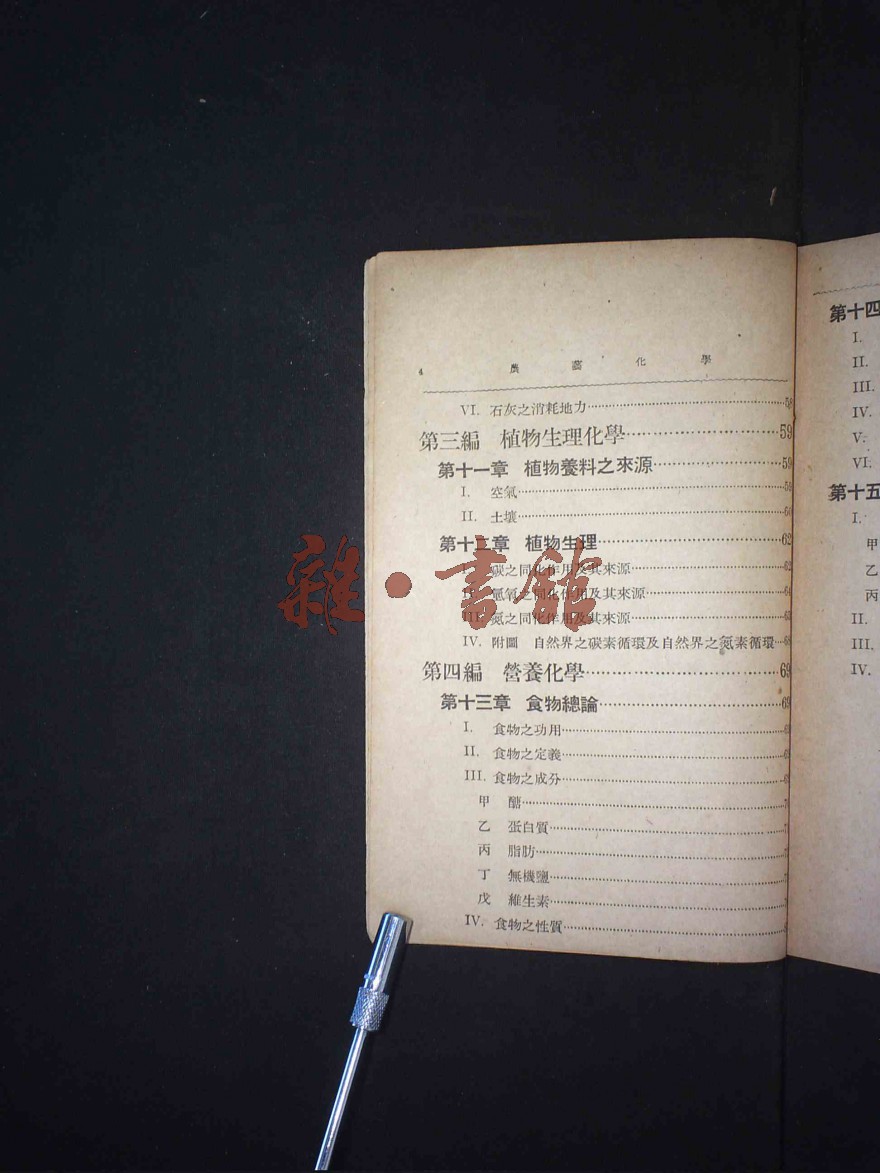 4 農藝化學
VI. 石灰之消耗地力 58
第三編 植物生理化學 59
第十一章 植物養料之來源 59
I. 空氣 59
II. 土壤 60
第十二章 植物生理 62
I. 碳之同化作用及其來源 62
II. 氫氧之同化作用及其來源 64
III. 氮之同化作用及其來源
IV. 附圖 自然界之碳素循環及自然界之氮素循環 68
第四編 營養化學 69
第十三章 食物總論 69
I. 食物之功用
II. 食物之定義
III. 食物之成分
甲 醣
乙 蛋白質
丙 脂肪
丁 無機鹽
戊 維生素
IV. 食物之性質
第十四
I.
II.
III.
IV.
V.
VI.
第十五
I.
甲
乙
丙
II.
III.
IV.
雜·書館